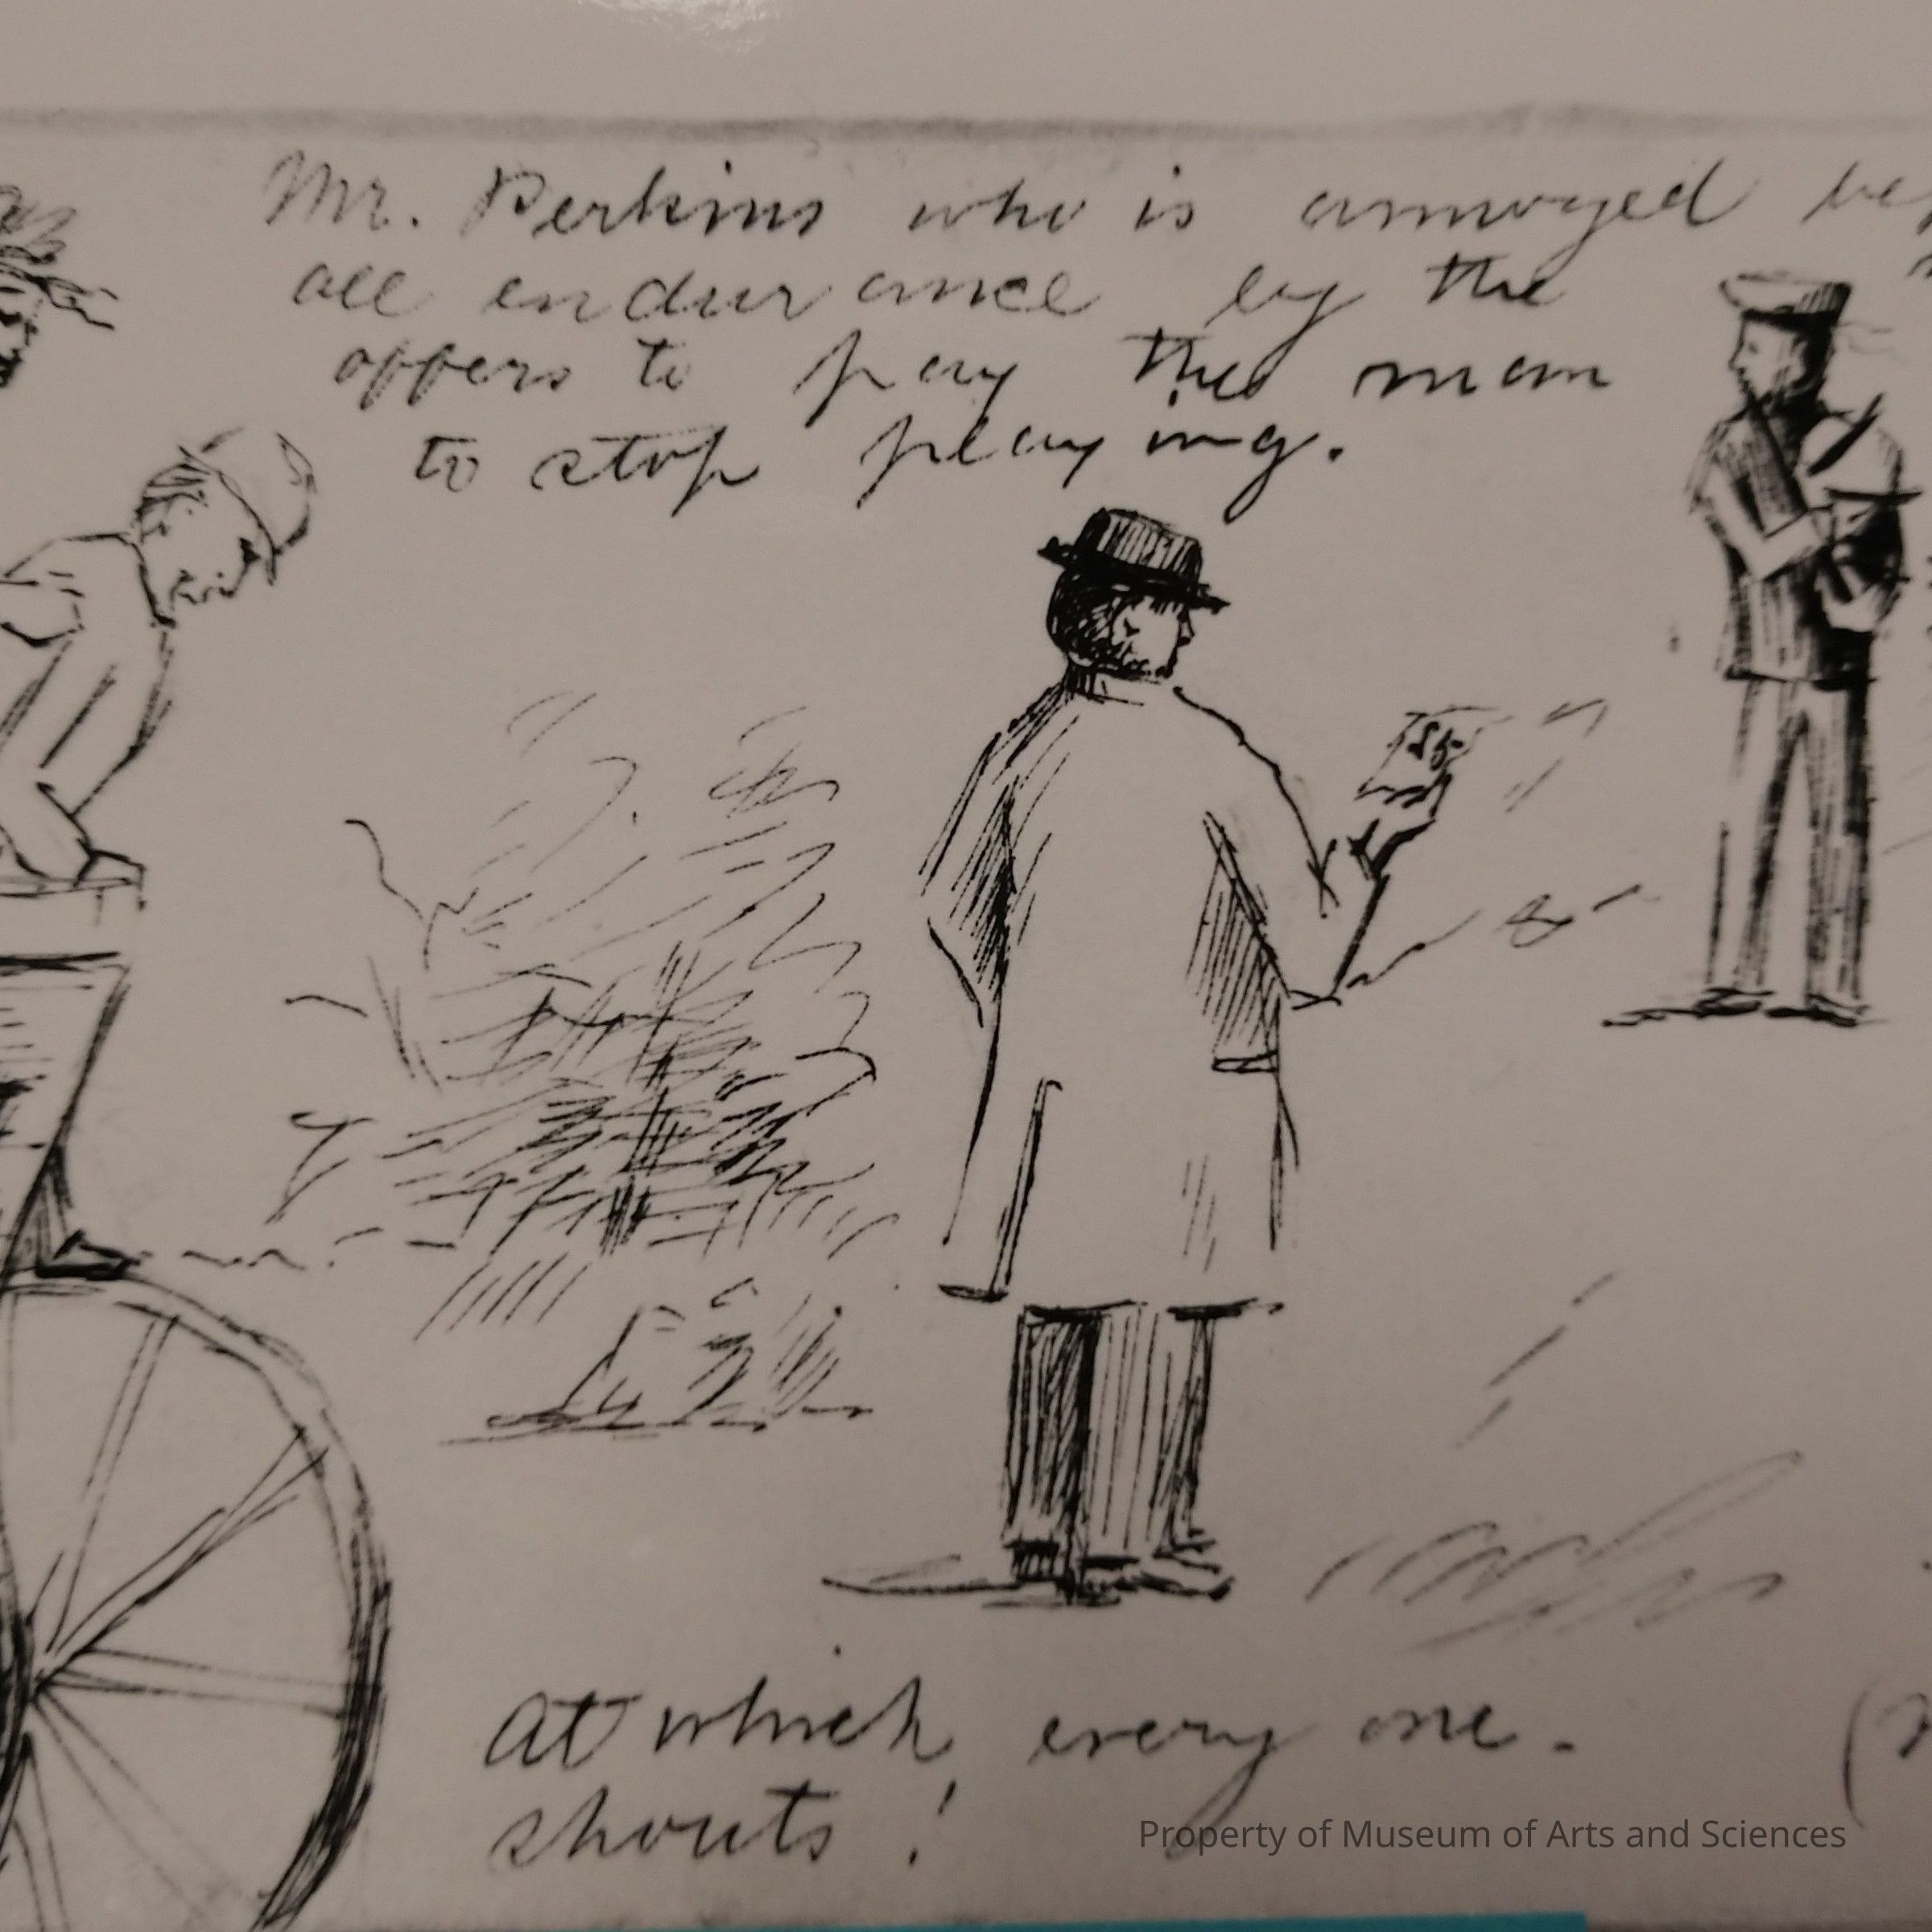 Mr. Perkins who is annoyed
all endurance by the
offers to pay the man
to stop playing.
$5
At which every one.
shouts!
Property of Museum of Arts and Sciences